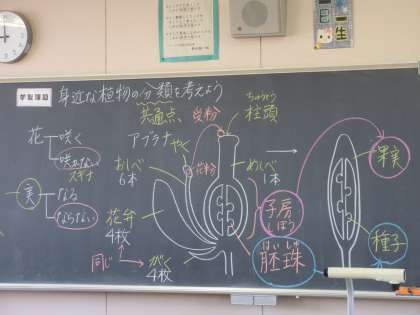 学習課題
身近な植物の分類を考えよう
花
咲く
咲かない
スギナ
実
なる
ならない
共通点
受粉
ちゅうとう
柱頭
アブラナ
やく
花粉
おしべ
6本
めしべ
1本
花弁
4枚
同じ
がく
4枚
子房
しぼう
はいしゅ
胚珠
果実
種子